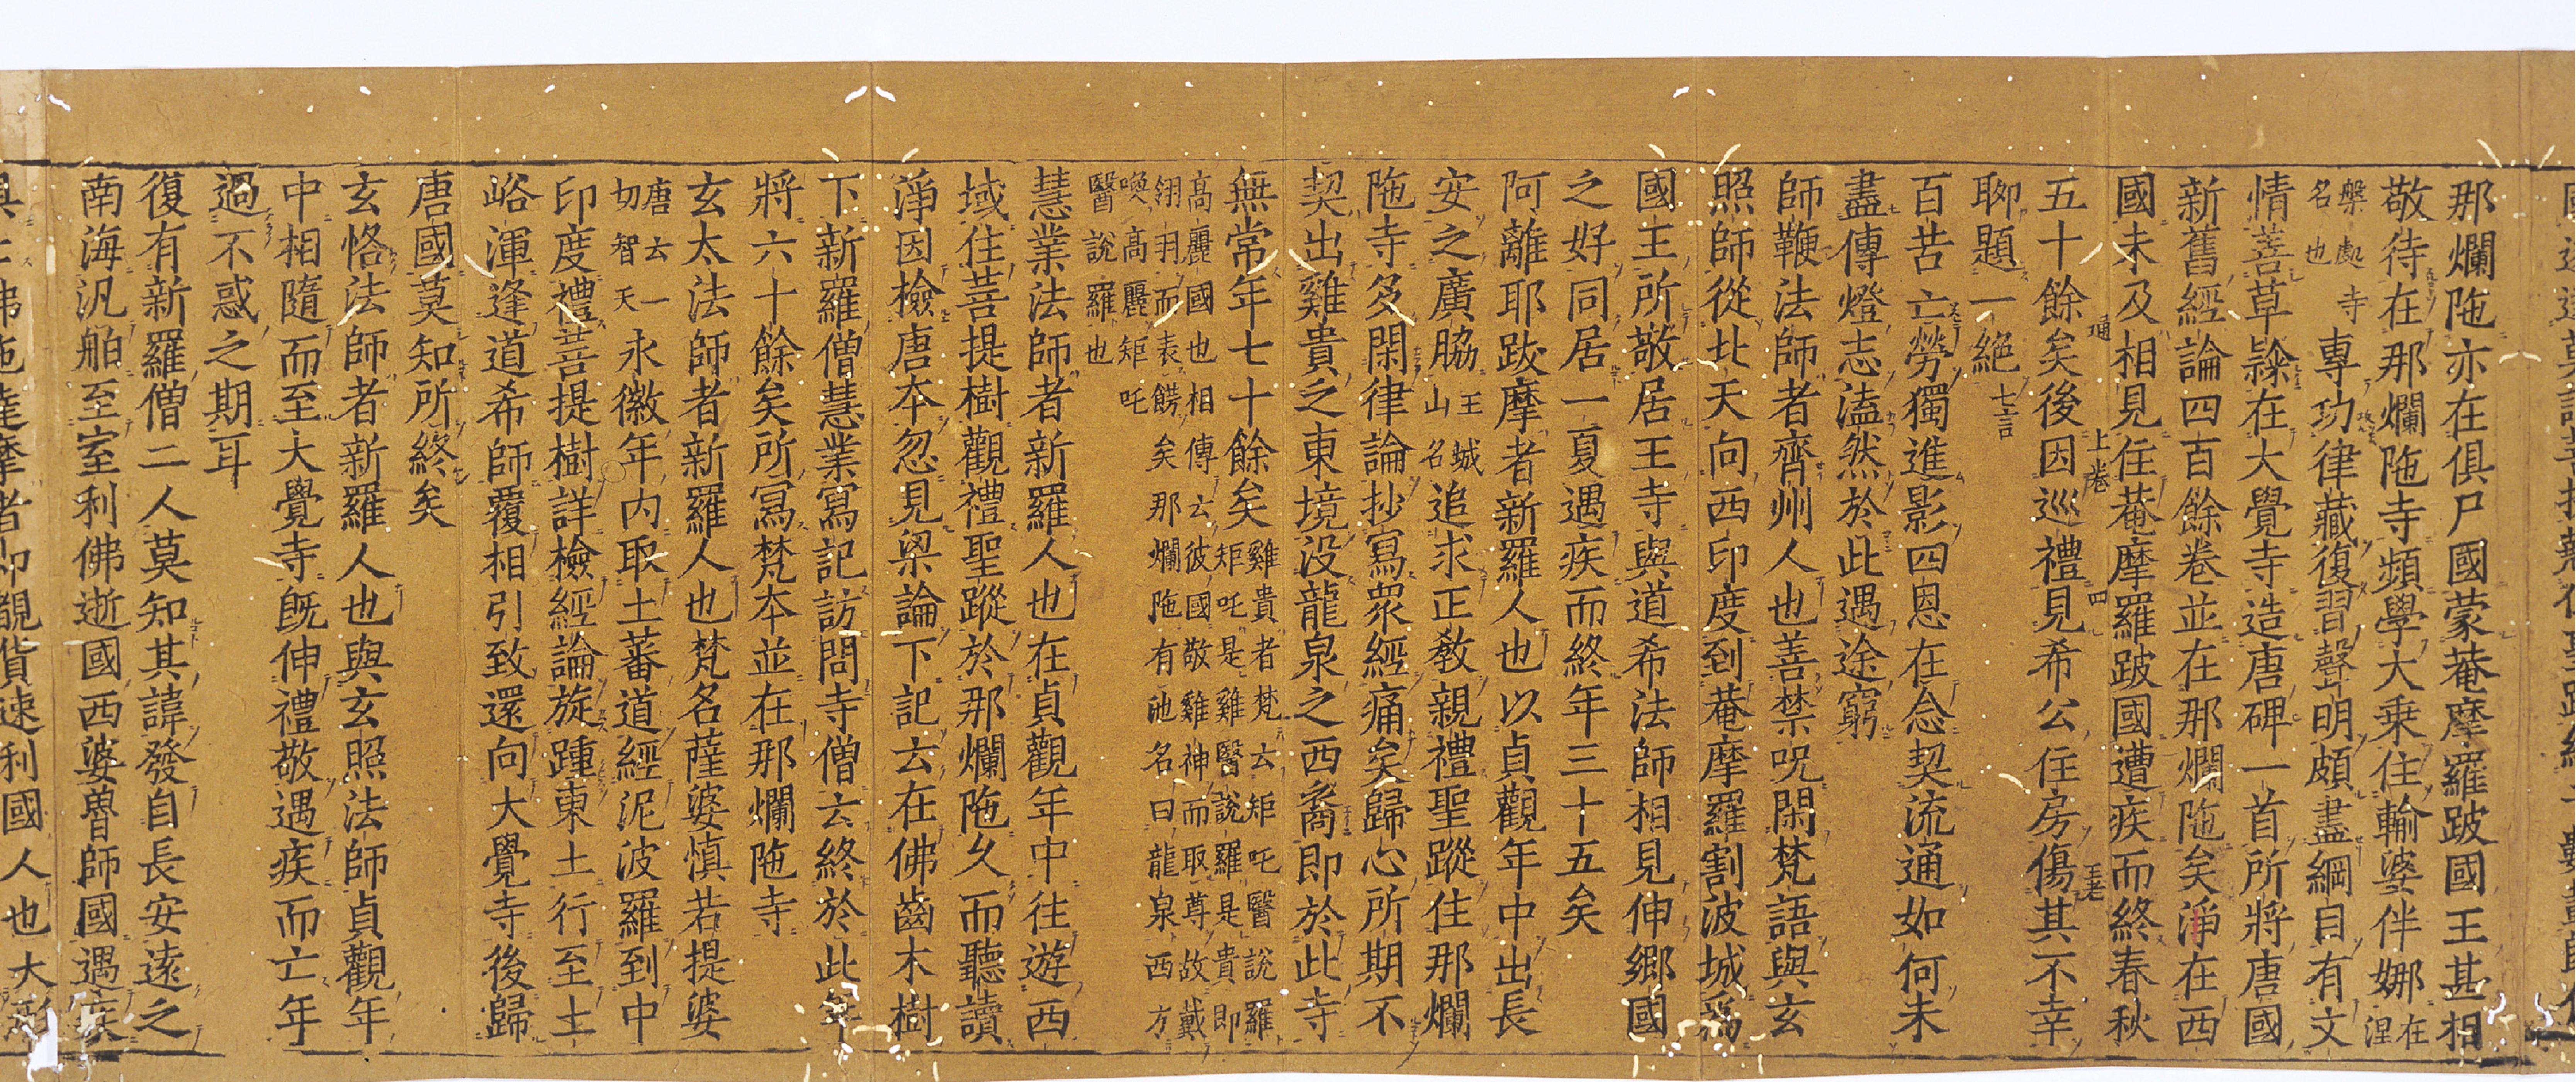 那爛陁亦在俱尸國蒙菴摩羅跛國王甚相
敬待在那爛陁寺頻學大乗住輸婆伴娜在涅
槃處寺名也專功律藏復習聲明頗盡綱目有文
情善草隸在大覺寺造唐碑一首所將唐國
新舊經論四百餘卷並在那爛陁矣淨在西
國未及相見住菴摩羅跛國遭疾而終春秋
五十餘矣後因巡禮見希公住房傷其不幸
聊題一絕七言
百苦亡勞獨進影四恩在念契流通如何未
盡傳燈志溘然於此遇途窮
師鞭法師者齊州人也善禁呪閑梵語與玄
照師從北天向西印度到菴摩羅割波城爲
國王所敬居王寺與道希法師相見伸鄉國
之好同居一夏遇疾而終年三十五矣
阿離耶跋摩者新羅人也以貞觀年中出長
安之廣脇王城山名追求正教親禮聖蹤住那爛
陁寺多閑律論抄寫衆經痛矣歸心所期不
契出雞貴之東境没龍泉之西裔即於此寺
無常年七十餘矣雞貴者梵云矩吒醫說羅矩吒是雞醫說羅是貴即
高麗國也相傳云彼國敬雞神而取尊故戴翎羽而表餝矣那爛陁有池名曰龍泉西方
喚高麗矩吒醫說羅也
慧業法師者新羅人也在貞觀年中往遊西
域住菩提樹觀禮聖蹤於那爛陁久而聽讀
淨因檢唐本忽見梁論下記云在佛齒木樹
下新羅僧慧業寫記訪問寺僧云終於此年
將六十餘矣所寫梵本並在那爛陁寺
玄太法師者新羅人也梵名薩婆慎若提婆
唐云一切智天永徽年内取土蕃道經泥波羅到中
印度禮菩提樹詳檢經論旋踵東土行至土
峪渾逢道希師覆相引致還向大覺寺後歸
唐國莫知所終矣
玄恪法師者新羅人也與玄照法師貞觀年
中相隨而至大覺寺旣伸禮敬遇疾而亡年
過不惑之期耳
復有新羅僧二人莫知其諱發自長安遠之
南海汎舶至室利佛逝國西婆魯師國遇疾
佛陁達摩者即覩貨速利國人也大